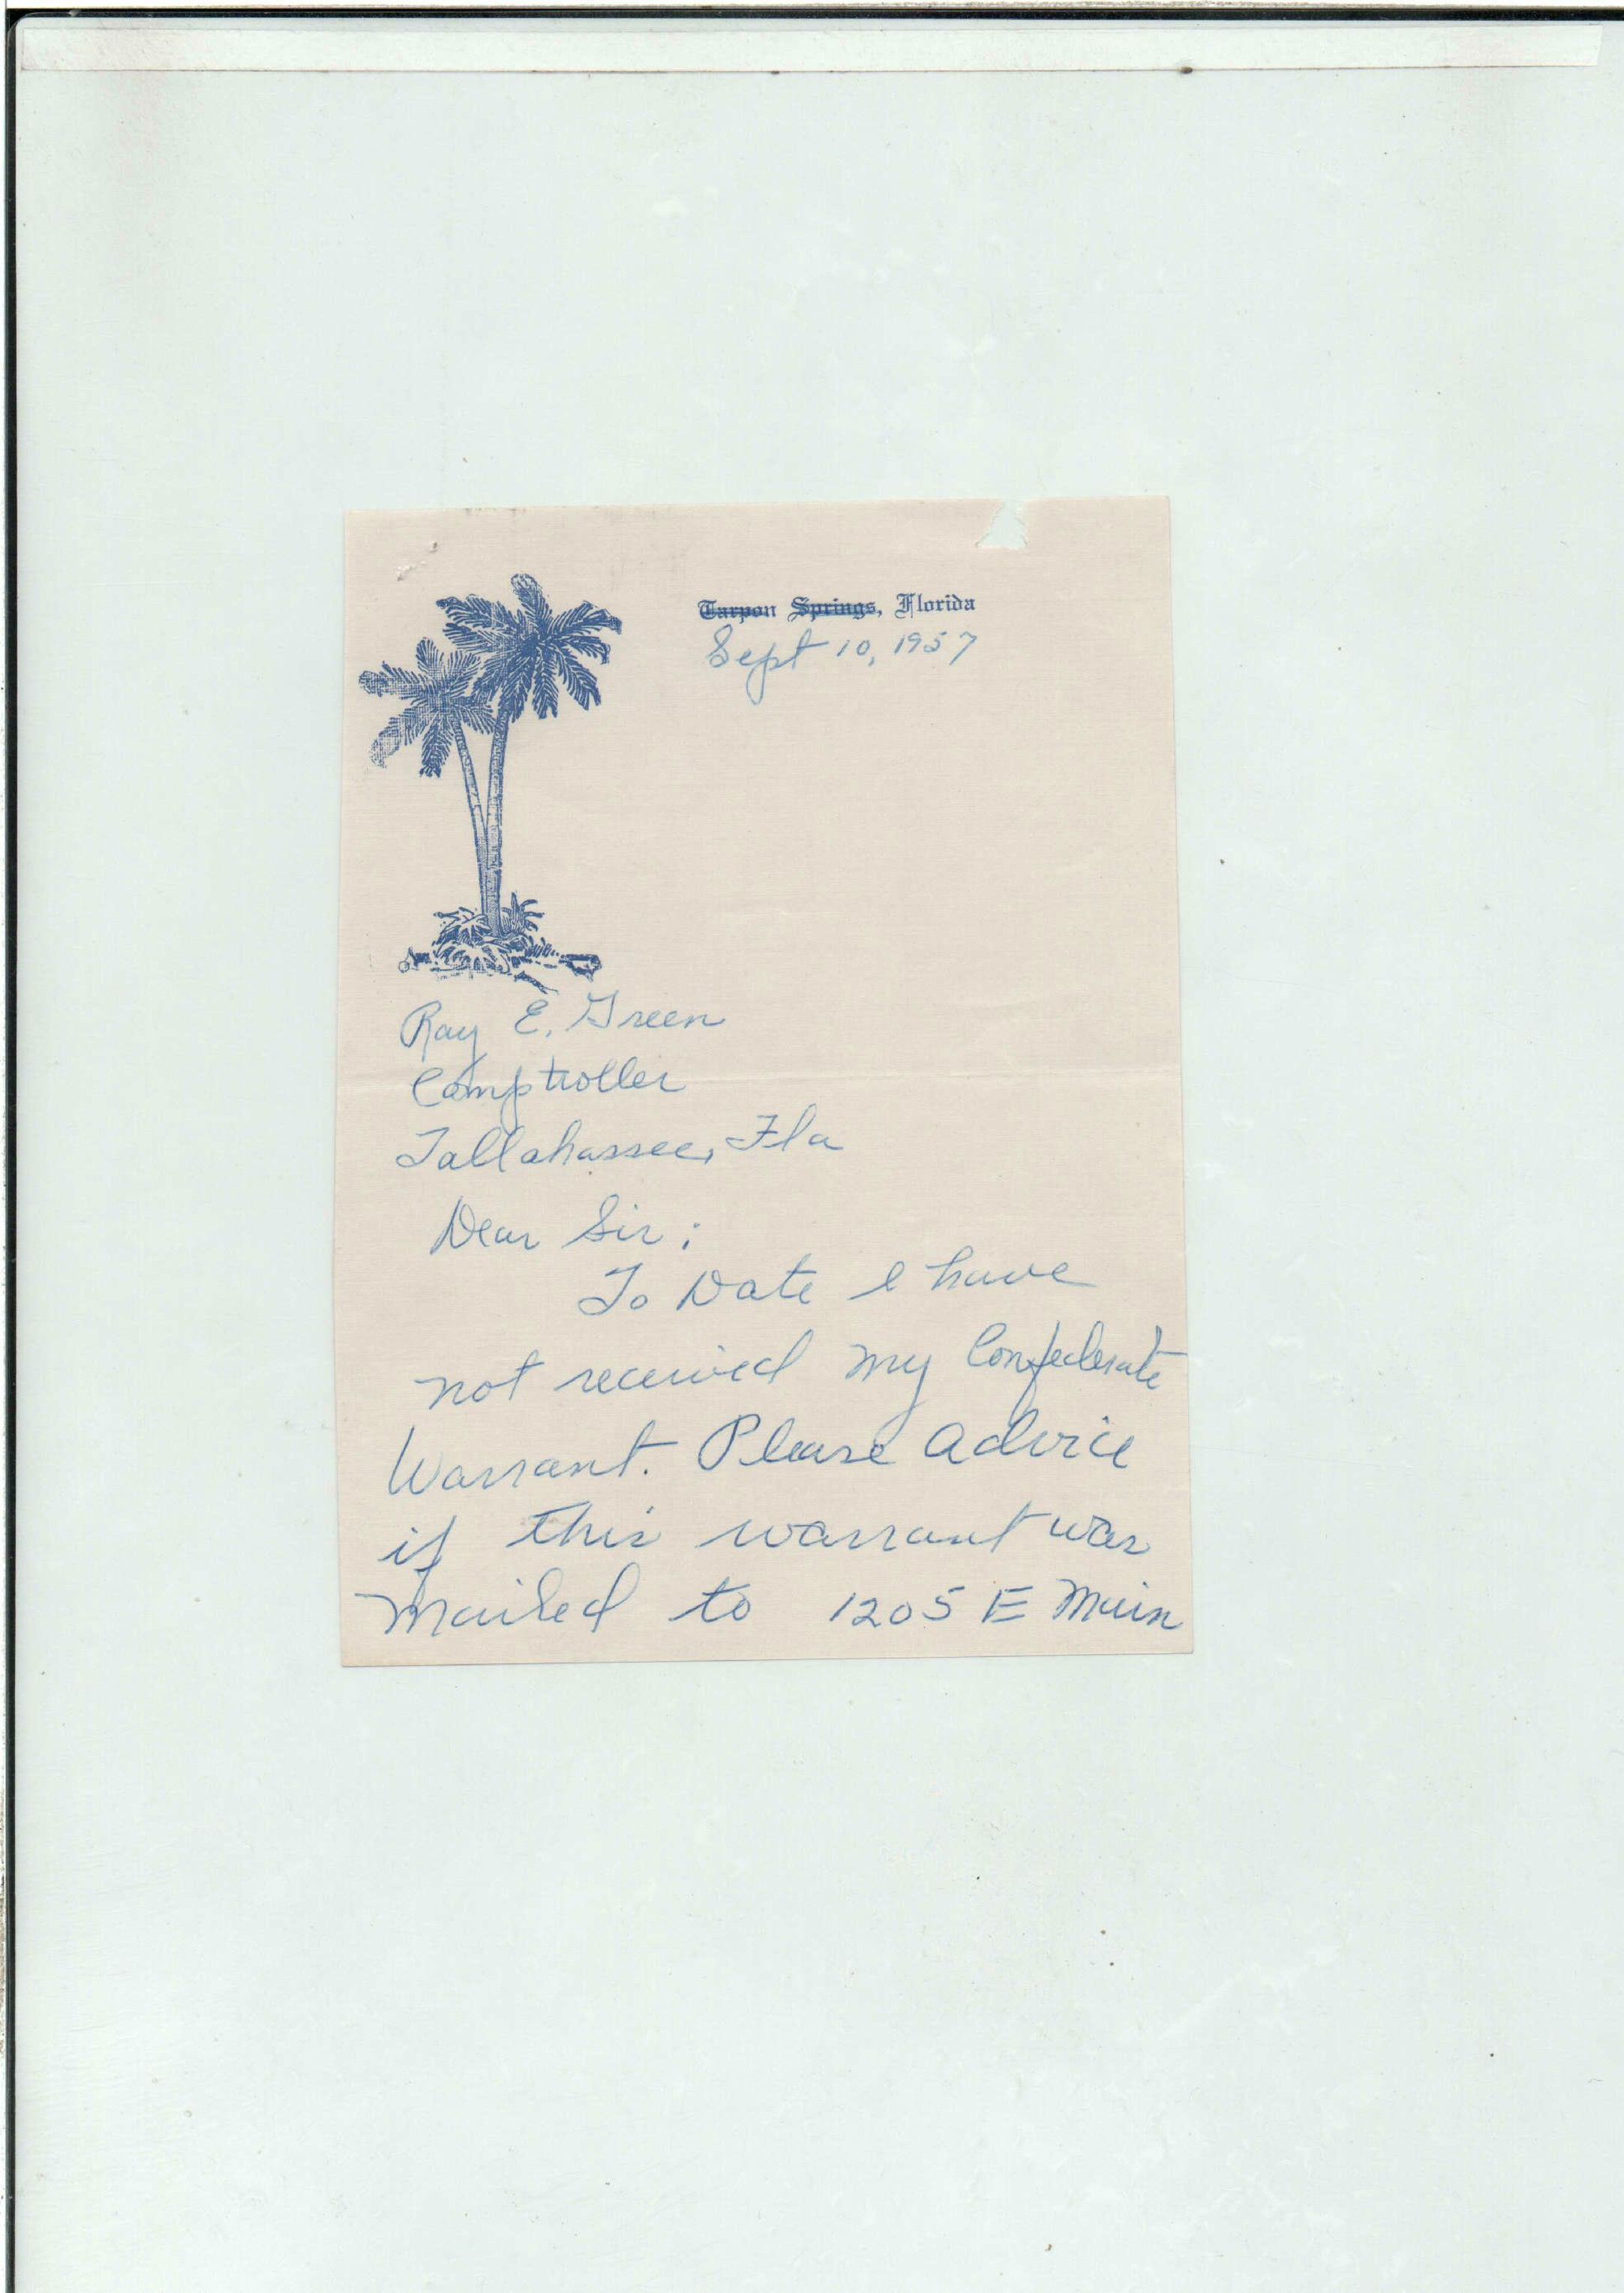 Tarpon Springs, Florida
Sept 10, 1957
Ray E. Green
Comptroller
Tallahassee, Fla
Dear Sir;
To Date I have
not received my Confederate
Warrant. Please advice
if this warrant was
mailed to 1205 E Main